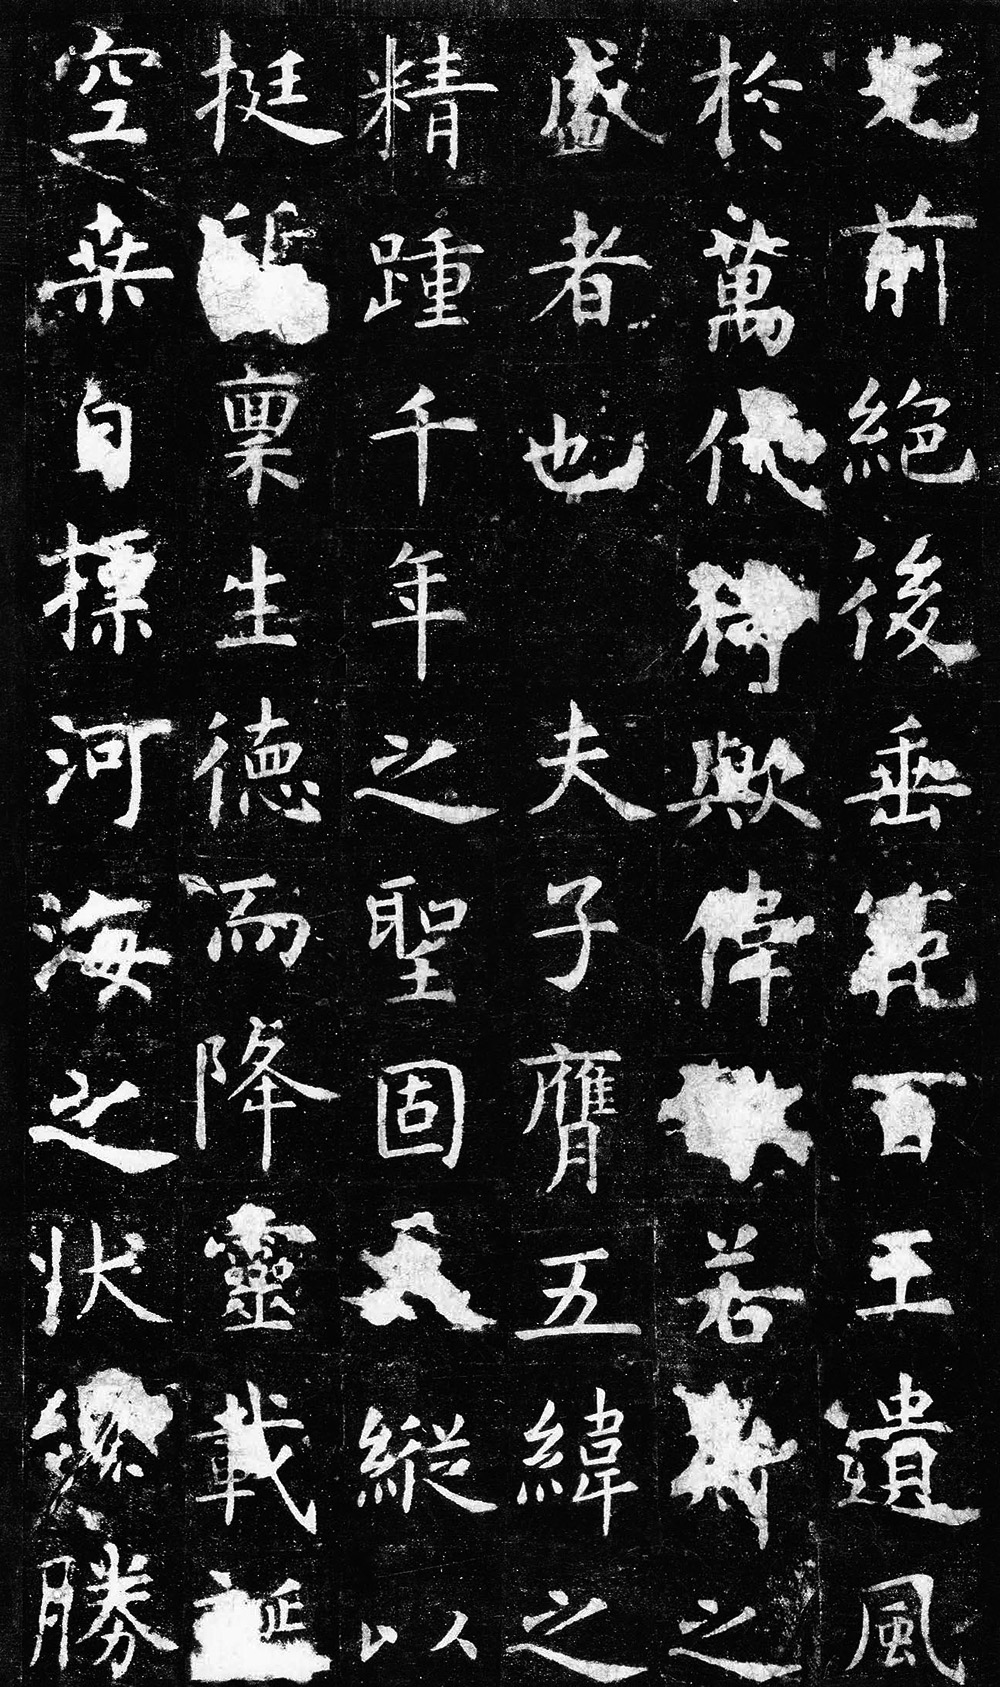 光前絕後垂範百王遺風
扵萬代猗歟偉若斯之
盛者也 夫子膺五緯之
精踵千年之聖固天縱以
挺質稟生德而降靈載誕
空桒自標河海之狀纔勝